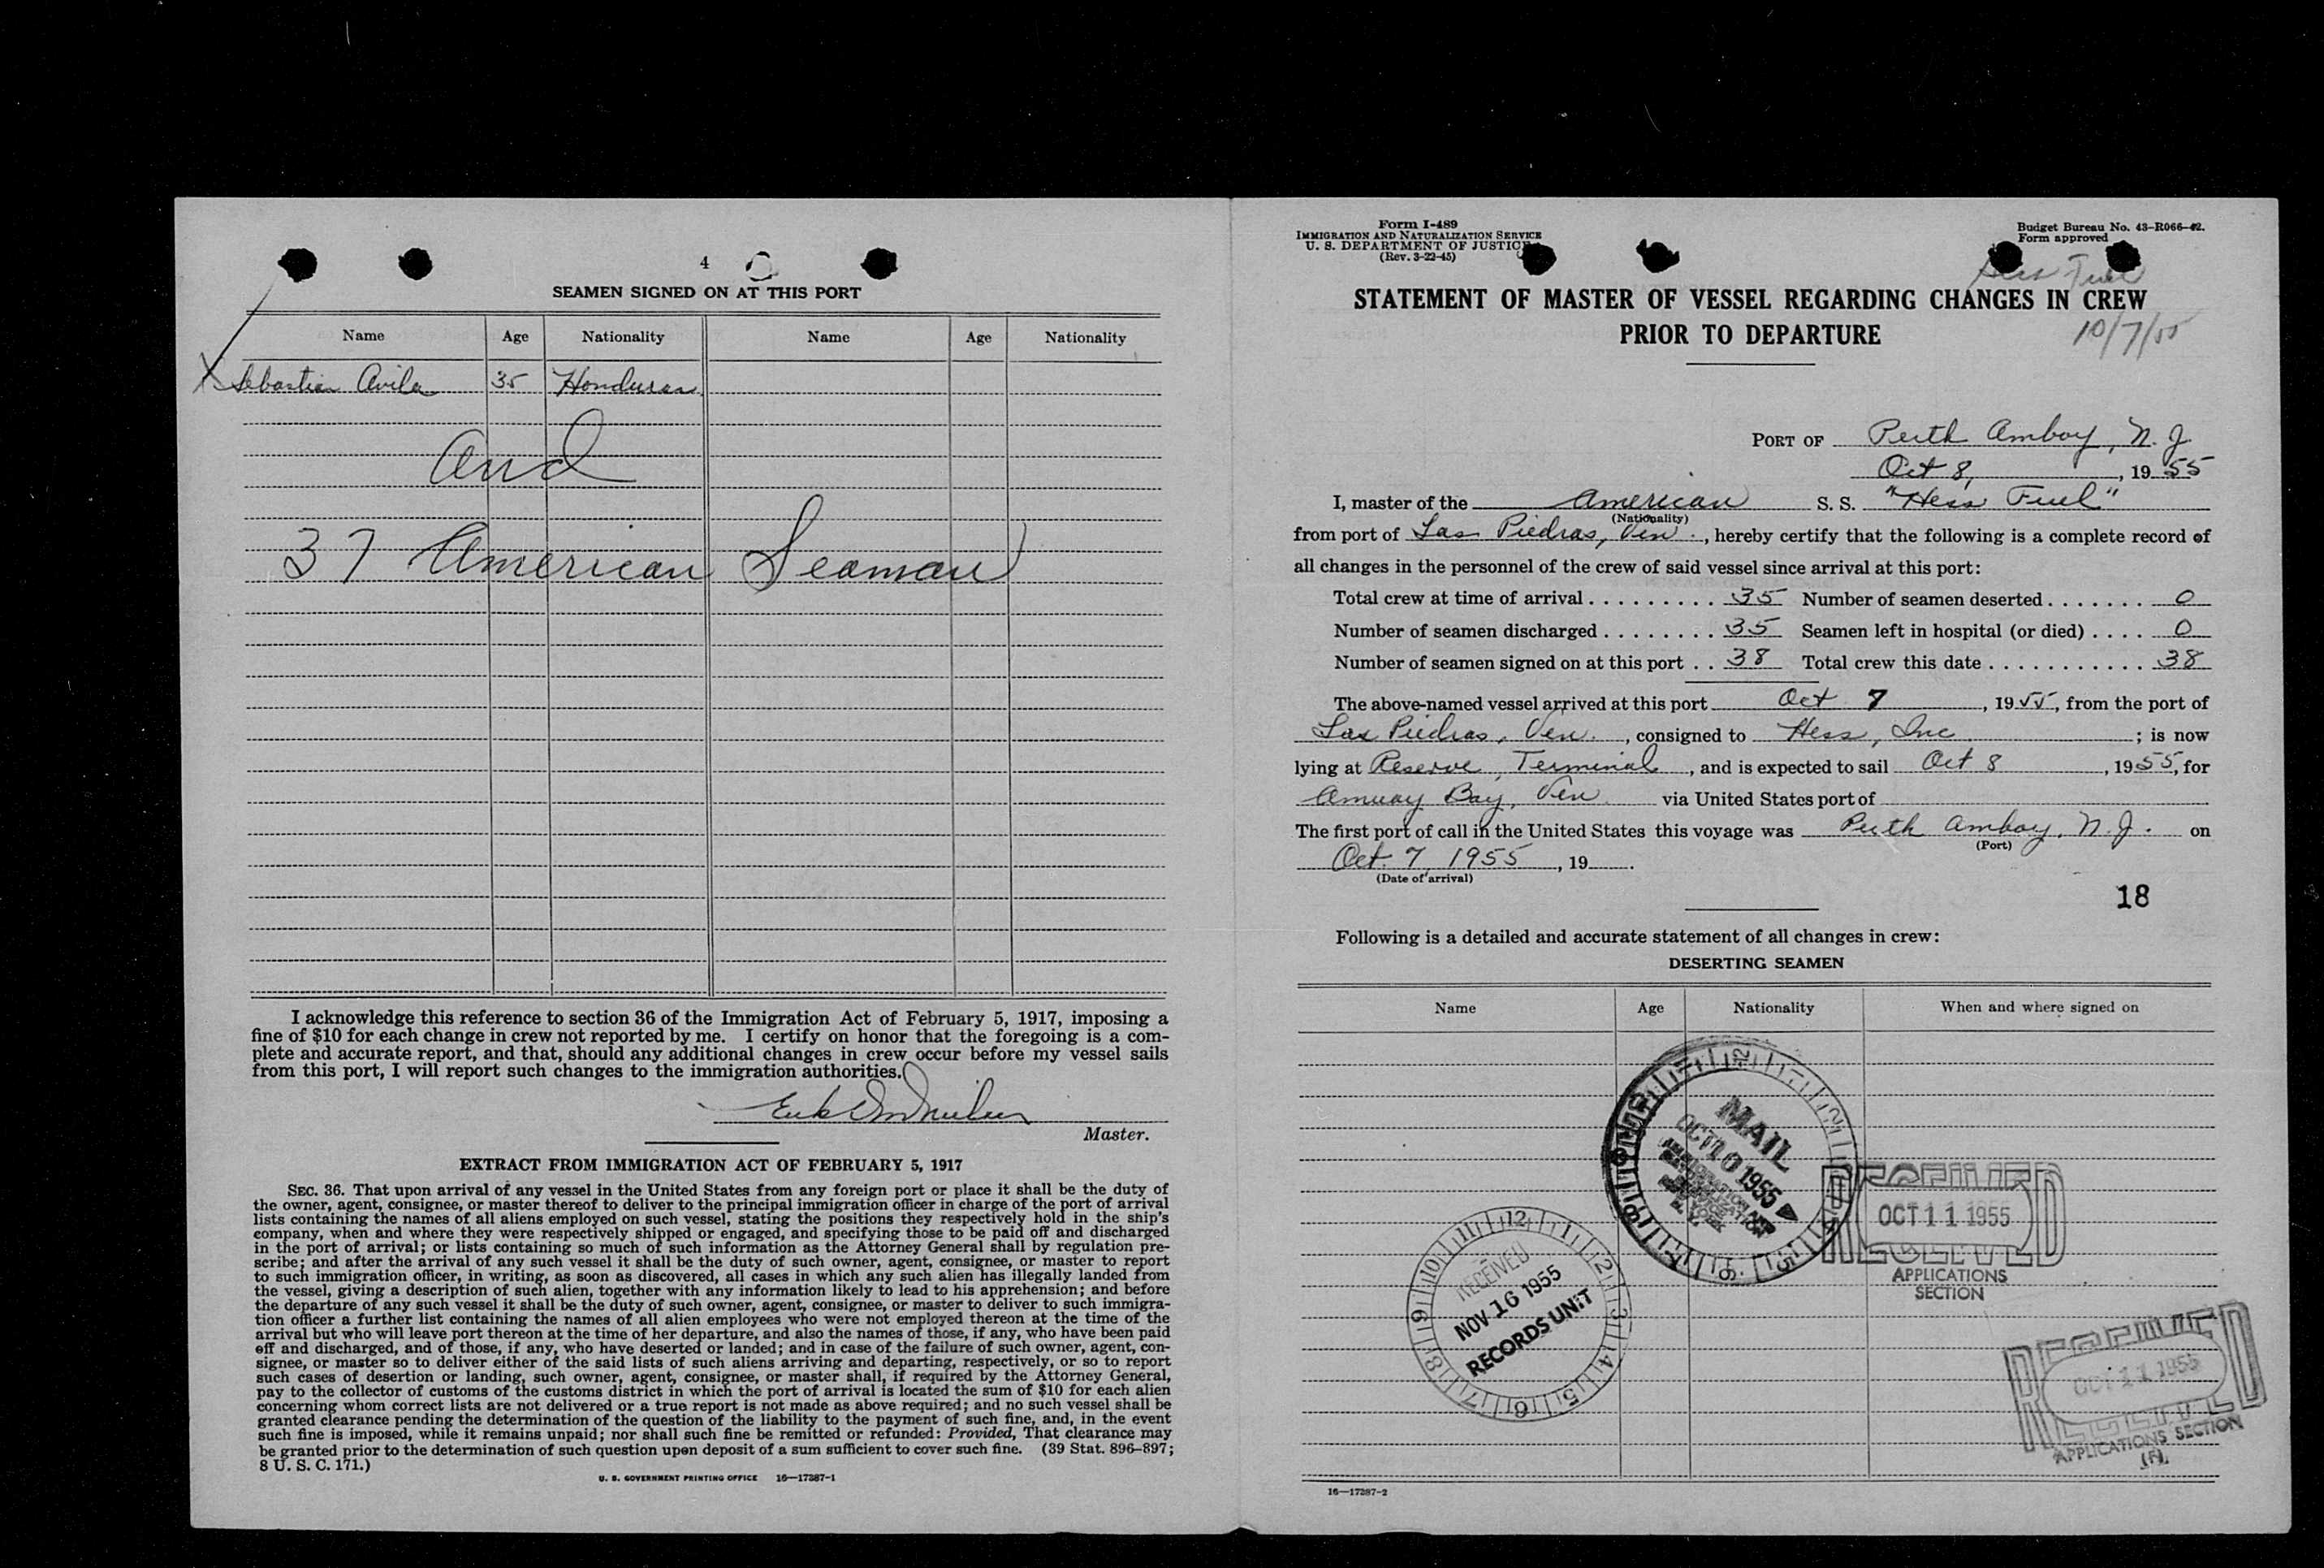 4
SEAMEN SIGNED ON AT THIS PORT
Name Age Nationality Name Age Nationality
X Sebastian Avila 35 Honduras
And
37 American Seaman
I acknowledge this reference to section 36 of the Immigration Act of February 5, 1917, imposing a
fine of $10 for each change in crew not reported by me. I certify on honor that the foregoing is a com-
plete and accurate report, and that, should any additional changes in crew occur before my vessel sails
from this port, I will report such changes to the immigration authorities.
Master.
EXTRACT FROM IMMIGRATION ACT OF FEBRUARY 5, 1917
SEC. 36. That upon arrival of any vessel in the United States from any foreign port or place it shall be the duty of
the owner, agent, consignee, or master thereof to deliver to the principal immigration officer in charge of the port of arrival
lists containing the names of all aliens employed on such vessel, stating the positions they respectively hold in the ship's
company, when and where they were respectively shipped or engaged, and specifying those to be paid off and discharged
in the port of arrival; or lists containing so much of such information as the Attorney General shall by regulation pre-
scribe; and after the arrival of any such vessel it shall be the duty of such owner, agent, consignee, or master to report
to such immigration officer, in writing, as soon as discovered, all cases in which any such alien has illegally landed from
the vessel, giving a description of such alien, together with any information likely to lead to his apprehension; and before
the departure of any such vessel it shall be the duty of such owner, agent, consignee, or master to deliver to such immigra-
tion officer a further list containing the names of all alien employees who were not employed thereon at the time of the
arrival but who will leave port thereon at the time of her departure, and also the names of those, if any, who have been paid
off and discharged, and of those, if any, who have deserted or landed; and in case of the failure of such owner, agent, con-
signee, or master so to deliver either of the said lists of such aliens arriving and departing, respectively, or so to report
such cases of desertion or landing, such owner, agent, consignee, or master shall, if required by the Attorney General,
pay to the collector of customs of the customs district in which the port of arrival is located the sum of $10 for each alien
concerning whom correct lists are not delivered or a true report is not made as above required; and no such vessel shall be
granted clearance pending the determination of the question of the liability to the payment of such fine, and, in the event
such fine is imposed, while it remains unpaid; nor shall such fine be remitted or refunded: Provided, That clearance may
be granted prior to the determination of such question upon deposit of a sum sufficient to cover such fine. (39 Stat. 896–897;
8 U. S. C. 171.)
U. S. GOVERNMENT PRINTING OFFICE 16—17387-1
Form I-489
IMMIGRATION AND NATURALIZATION SERVICE
U. S. DEPARTMENT OF JUSTICE
(Rev. 3-22-45)
Budget Bureau No. 43-R066-42.
Form approved
Hess Fuel
STATEMENT OF MASTER OF VESSEL REGARDING CHANGES IN CREW
PRIOR TO DEPARTURE
10/7/55
PORT OF Perth Amboy, N. J.
Oct 8, , 19 55
I, master of the American S. S. "Hess Fuel"
(Nationality)
from port of Las Piedras, Ven. , hereby certify that the following is a complete record of
all changes in the personnel of the crew of said vessel since arrival at this port:
Total crew at time of arrival . . . . . . . . . 35 Number of seamen deserted . . . . . . . 0
Number of seamen discharged . . . . . . . . 35 Seamen left in hospital (or died) . . . . 0
Number of seamen signed on at this port . . 38 Total crew this date . . . . . . . . . . . . 38
The above-named vessel arrived at this port Oct 7 , 19 55, from the port of
Las Piedras, Ven. , consigned to Hess, Inc ; is now
lying at Reserve, Terminal , and is expected to sail Oct 8 , 19 55, for
Amuay Bay, Ven. via United States port of
The first port of call in the United States this voyage was Perth Amboy, N. J. on
(Port)
Oct. 7, 1955 , 19 .
(Date of arrival)
18
Following is a detailed and accurate statement of all changes in crew:
DESERTING SEAMEN
Name Age Nationality When and where signed on
MAIL
OCT 10 1955
RECEIVED
OCT 11 1955
APPLICATIONS
SECTION
RECEIVED
NOV 16 1955
RECORDS UNIT
RECEIVED
OCT 11 1955
APPLICATIONS SECTION
16—17387-2